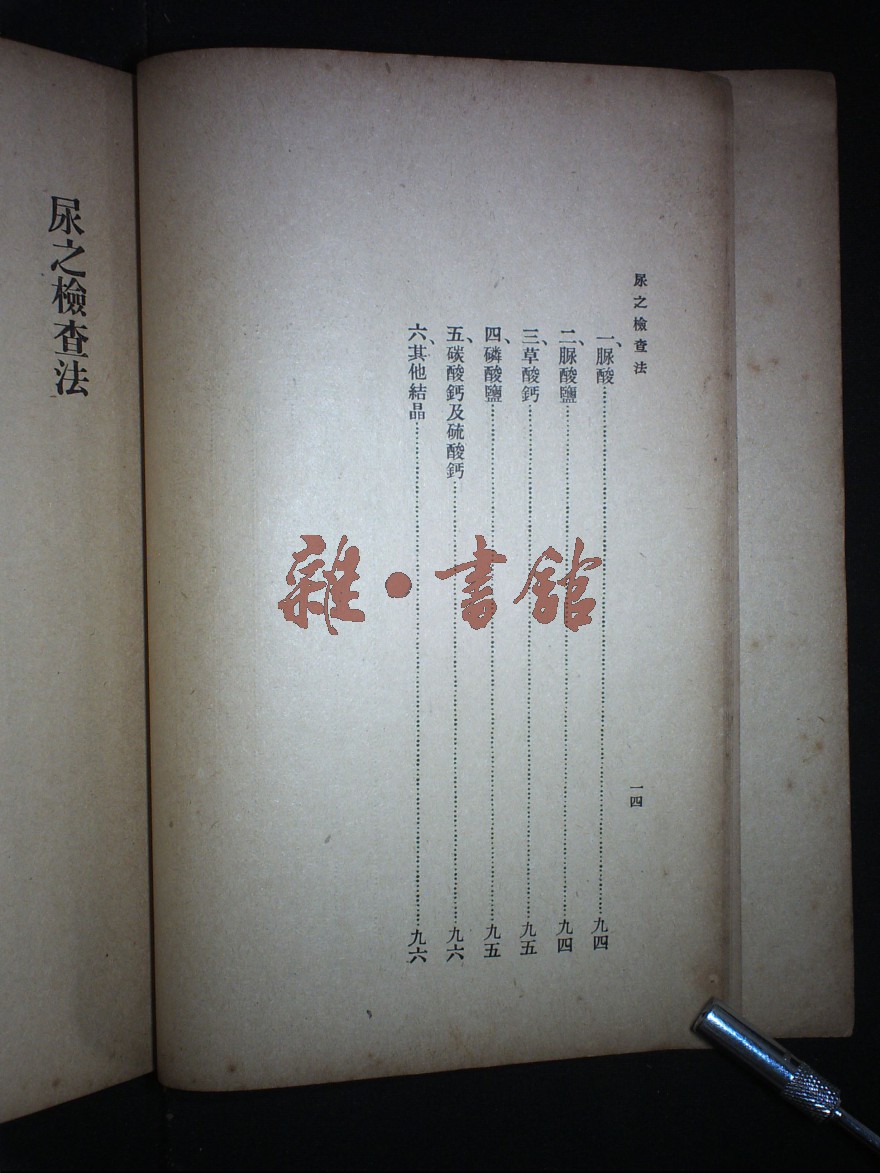 尿之檢查法
一四
一、脲酸……九四
二、脲酸鹽……九四
三、草酸鈣……九五
四、磷酸鹽……九五
五、碳酸鈣及硫酸鈣……九六
六、其他結晶……九六
尿之檢查法
雜·書館